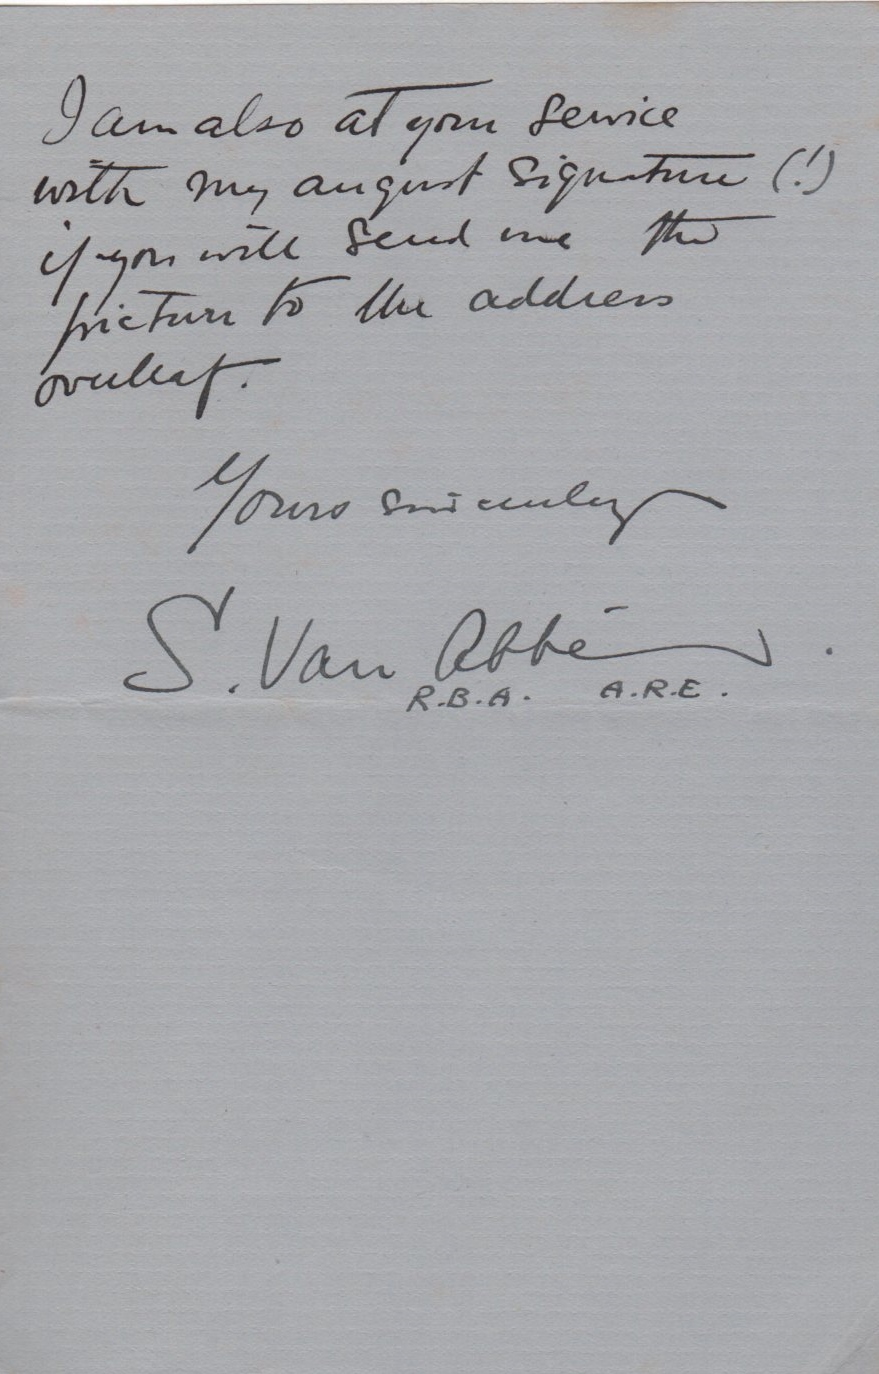 I am also at your service
with my august signature (!)
if you will send me the
picture to the address
overleaf.
Yours sincerely
S. Van Abbé.
R.B.A. A.R.E.